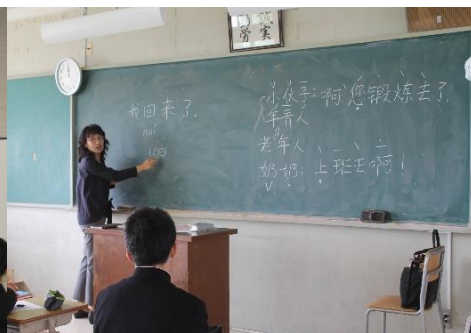 我回来了。
huí
小伙子:啊,您锻炼去了。
年青人
老年人
奶奶 上班去啊!